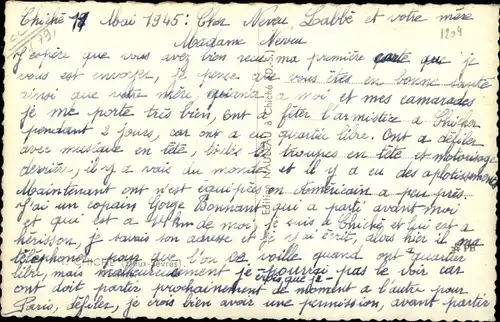 Chiché 17 Mai 1945 : Cher Neveu Labbé et votre mère
Madame Neveu
J'espère que vous avez bien recu ma première carte que je
vous est envoyer, je pense que vous êtes en bonne santé
ainsi que votre mère, quand a moi et mes camarades
je me porte très bien, ont a fêter l'armistice a Chiché
pendant 2 jours, car ont a eu quartier libre. Ont a défiler
avec musique en tête, les troupes en tête et motorisage
derrière, il y a vais du monde et il y a eu des aplotissements
Maintenant ont n'est équipés en Américain a peu près.
J'ai un copain Gorge Bonnant qui a parti avant moi
et qui est a km de moi, je suis a Chiché et lui est a
hérisson, je savais son adresse et je lui écrit, alors hier il
téléphone pour que l'on ce voille quand ont quartier
libre, mais malheureusement je pourrai pas le voir car
crois que je
ont doit partir prochainement de moment a l'autre pour
Paris, défiler, je crois bien avoir une permission, avant partir
1209
Edition NAUDEAU à Chiché
CHICHÉ (Deux-Sèvres)